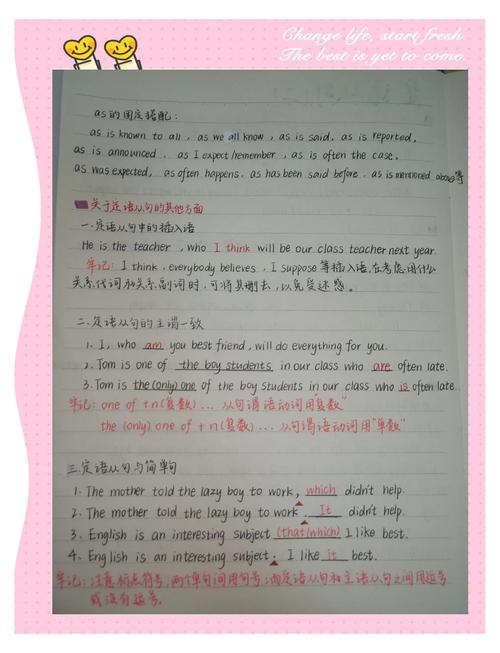 Change life, start fresh.
The best is yet to come.
as的固定搭配:
as is known to all, as we all know, as is said, as is reported,
as is announced, as I expect/remember, as is often the case,
as was expected, as often happens, as has been said before, as is mentioned above等
关于定语从句的其他方面
一.定语从句中的插入语
He is the teacher, who I think will be our class teacher next year.
牢记: I think, everybody believes, I suppose等插入语,在考虑用什么
关系代词和关系副词时,可将其删去,以免受迷惑。
二.定语从句的主谓一致
1. I, who am you best friend, will do everything for you.
2. Tom is one of the boy students in our class who are often late.
3. Tom is the (only) one of the boy students in our class who is often late.
牢记: one of +n(复数)... 从句谓语动词用"复数"
the (only) one of + n(复数)... 从句谓语动词用"单数"
三.定语从句与简单句
1. The mother told the lazy boy to work, which didn't help.
2. The mother told the lazy boy to work. It didn't help.
3. English is an interesting subject (that/which) I like best.
4. English is an interesting subject. I like it best.
牢记:注意标点符号,两个单句间用句号;而定语从句和主语从句之间用逗号
或没有逗号。